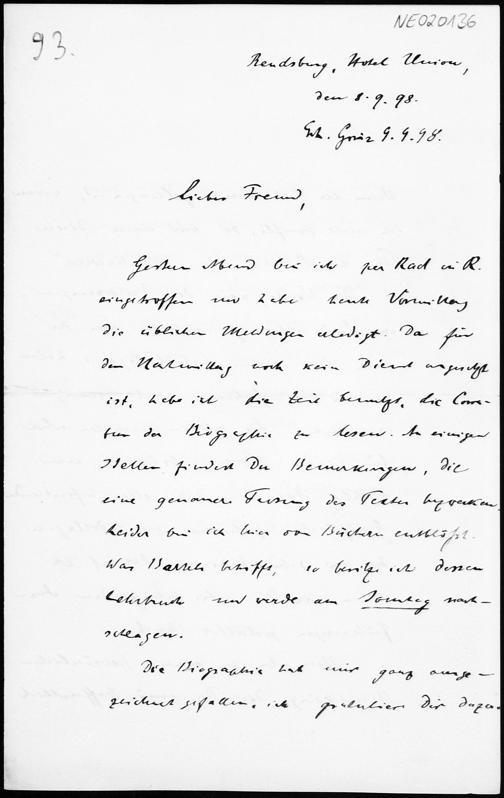 NE020136
93.
Rendsburg, Hotel Union,
den 8.9.98.
Erh. Gönz 9.9.98.
Lieber Freund,
Gestern Abend bin ich per Rad in R.
eingetroffen und habe heute Vormittag
die üblichen Meldungen erledigt. Da für
den Nachmittag noch kein Dienst angesetzt
ist, habe ich die Zeit benutzt, die Corre-
tur der Biographie zu lesen. An einigen
Stellen findest Du Bemerkungen, die
eine genauere Fassung des Textes bezwecken.
Leider bin ich hier von Büchern entblößt.
Was Bartels betrifft, so besitze ich dessen
Lehrbuch und werde am Sonntag nach-
schlagen.
Die Biographie hat mir ganz ausge-
zeichnet gefallen, ich gratuliere Dir dazu